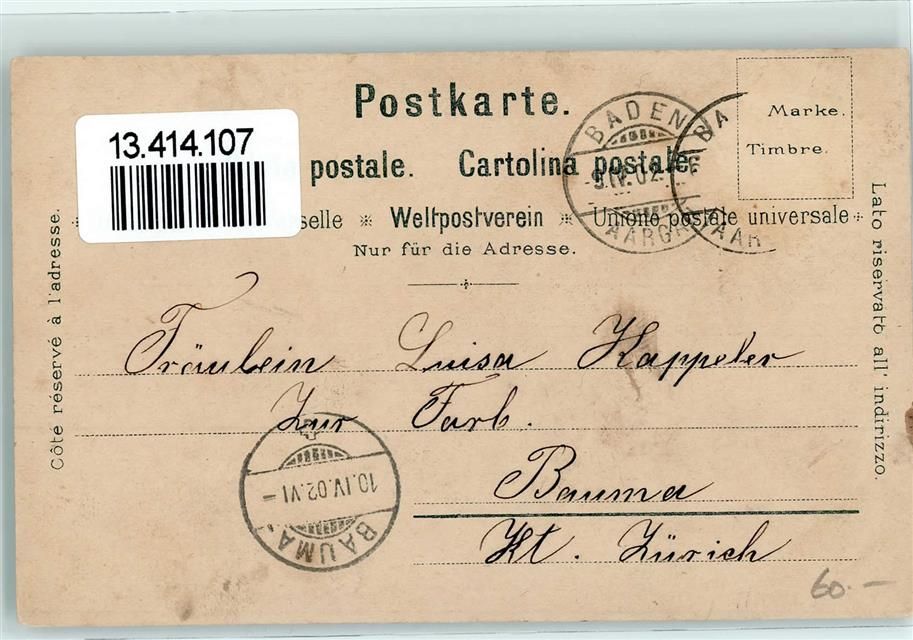 Postkarte.
13.414.107
postale. Cartolina postale.
selle * Weltpostverein * Unione postale universale
Nur für die Adresse.
Marke.
Timbre.
BADEN
9.IV.02
AARG
BA
AAR
Côté réservé à l'adresse.
Lato riservato all' indirizzo.
Fräulein Luisa Kappeler
Zur Farb.
Bauma
Kt. Zürich
10.IV.02.VI-
BAUMA.
60.-